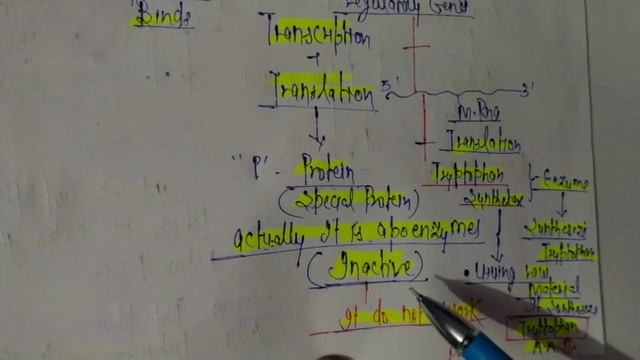 Binds
Regulatory Gene
Transcription
Translation
5' 3'
M.Rna
Translation
"P" - Protein
(Special Protein)
Tryptophan
Synthetase
Enzyme
actually it is apoenzymes
(Inactive)
It do not work
Synthesize
Tryptophan
• Using raw
Material
It synthesize
Tryptophan
A.A